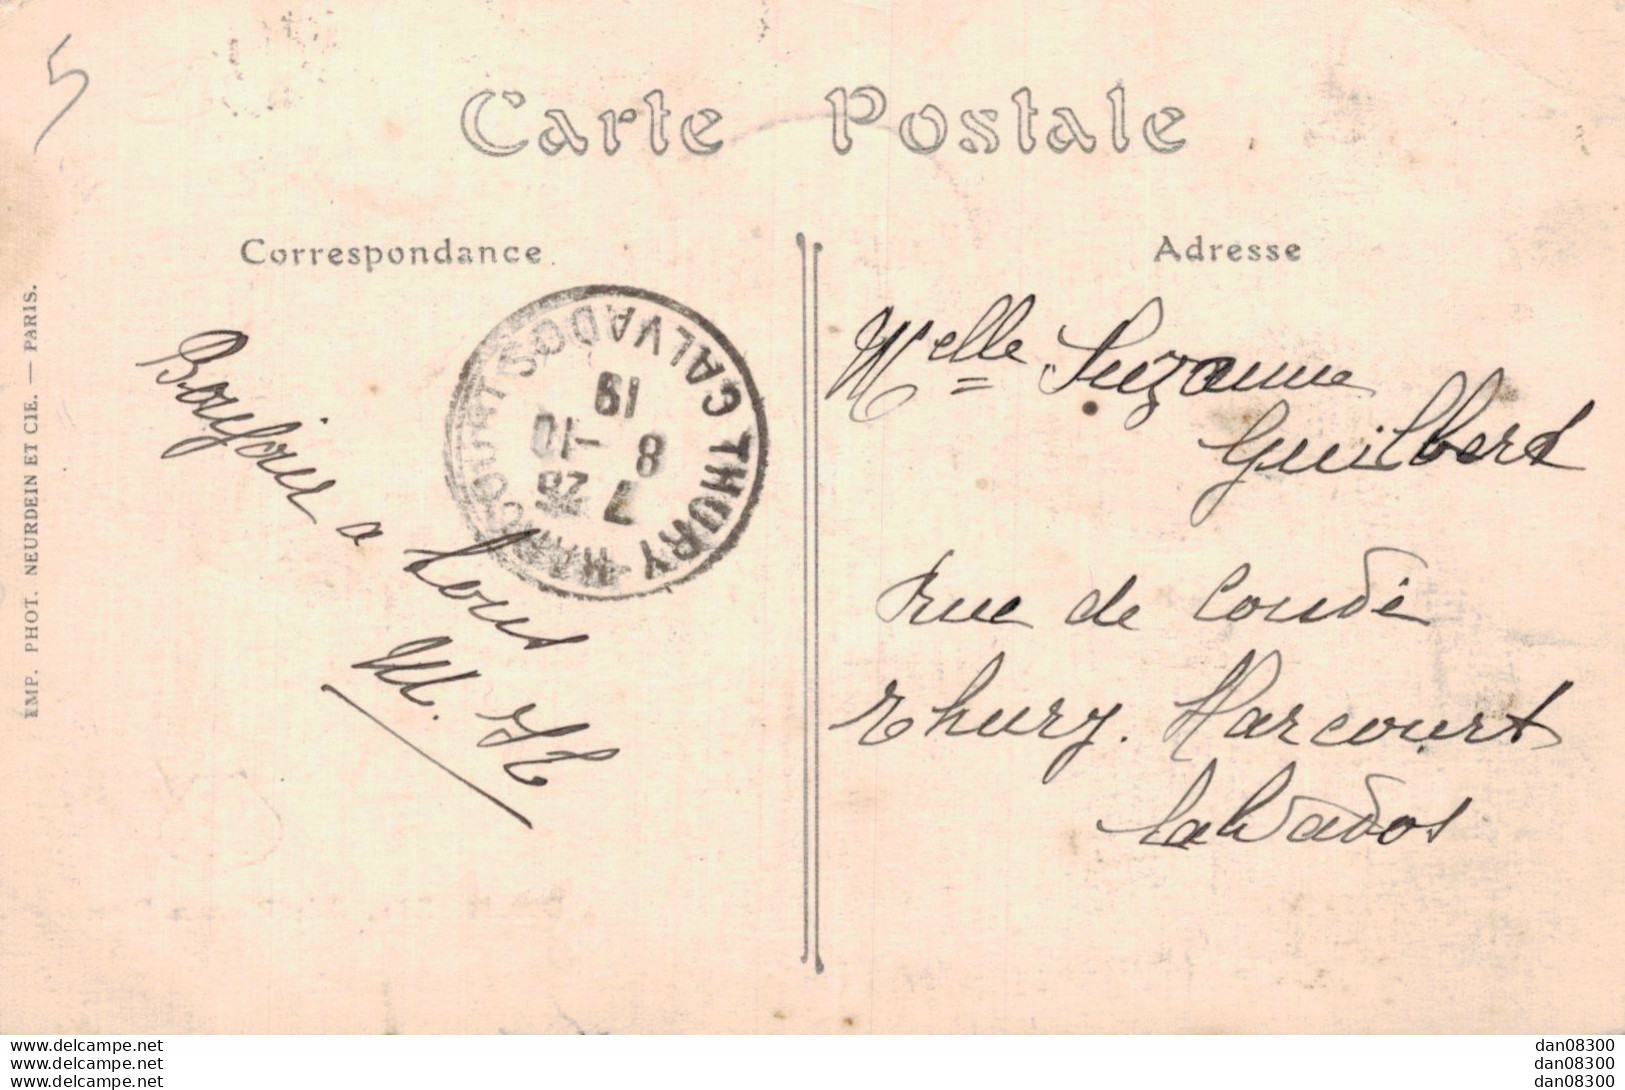 5
Carte Postale
Correspondance
Adresse
IMP. PHOT. NEURDEIN ET CIE. — PARIS.
Bonjour a
tous
M. H
THURY-HARCOURT CALVADOS
19
8 -10
7 26
Melle Suzanne
Guilbert
rue de Condé
Thury. Harcourt
Calvados
www.delcampe.net
www.delcampe.net
www.delcampe.net
dan08300
dan08300
dan08300